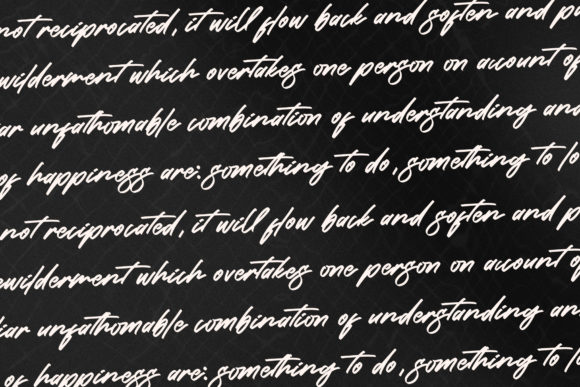 not reciprocated, it will flow back and soften and p
wilderment which overtakes one person on account of
iar unfathomable combination of understanding and
of happiness are: something to do, something to lo
not reciprocated, it will flow back and soften and p
ewilderment which overtakes one person on account of
iar unfathomable combination of understanding an
of happiness are: something to do, something to lo